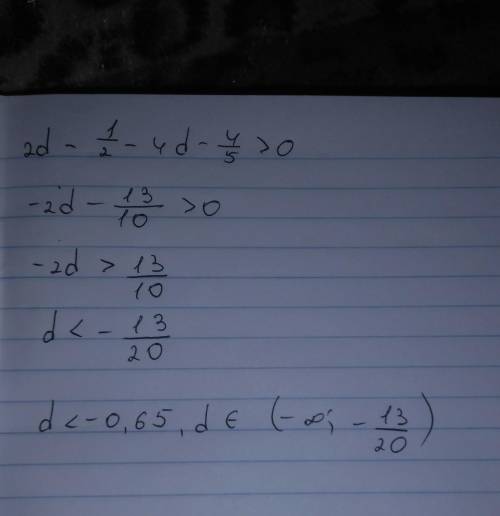 2d - 1/2 - 4d - 4/5 > 0
-2d - 13/10 > 0
-2d > 13/10
d < - 13/20
d < -0,65, d ∈ (-∞; - 13/20)